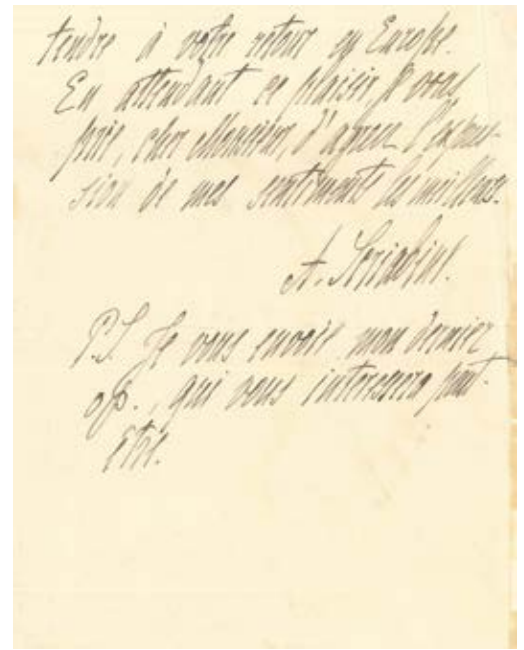 tendre à votre retour en Europe.
En attendant ce plaisir je vous
prie, cher Monsieur, d'agréer l'expres-
sion de mes sentiments les meilleurs.
A. Scriabine.
P.S. Je vous envoie mon dernier
op., qui vous interessera peut-
être.